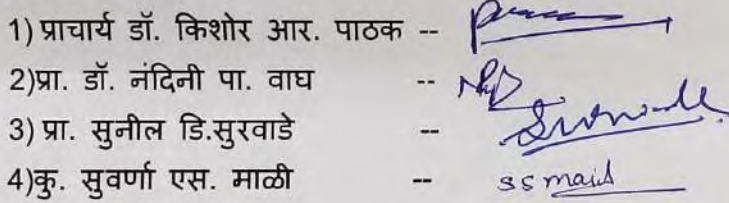 1) प्राचार्य डॉ. किशोर आर. पाठक --
2)प्रा. डॉ. नंदिनी पा. वाघ --
3) प्रा. सुनील डि.सुरवाडे --
4)कु. सुवर्णा एस. माळी -- ssmali